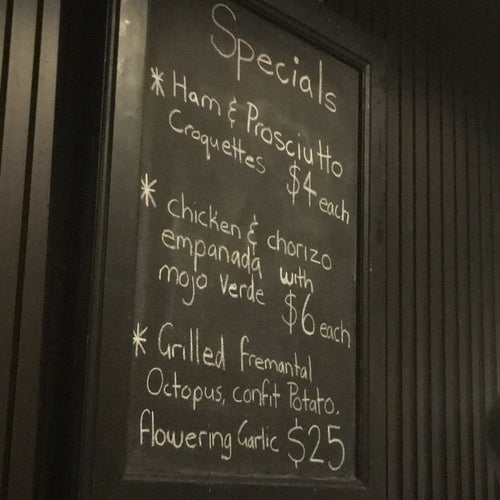 Specials
* Ham & Prosciutto
Croquettes $4 each
* chicken & chorizo
empanada with
mojo verde $6 each
* Grilled fremantal
Octopus, confit Potato.
flowering Garlic $25